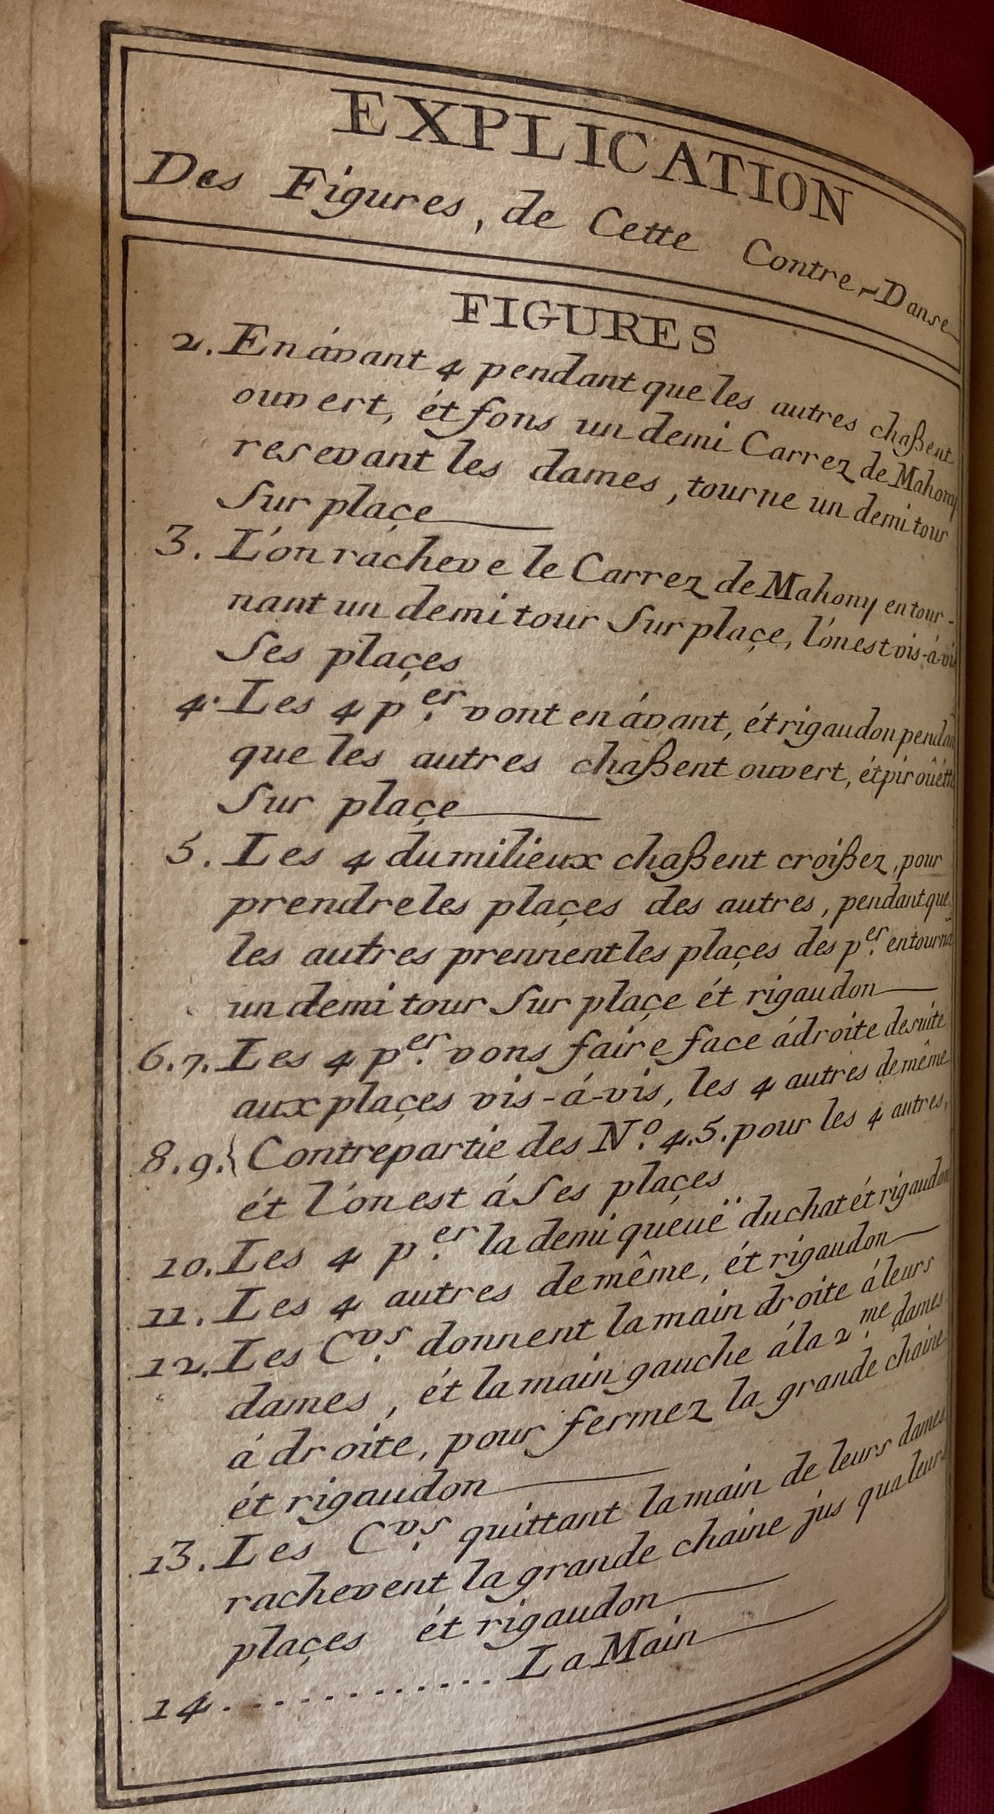 EXPLICATION
Des Figures, de Cette Contre-Danse
FIGURES
2. En ávant 4 pendant que les autres chaßent
ouvert, ét fons un demi Carrez de Mahony
resevant les dames, tourne un demi tour
Sur plaçe
3. L'on ràcheve le Carrez de Mahony en tour-
nant un demi tour Sur plaçe, l'on est vis-á-vis
Ses plaçes
4. Les 4 p.er vont en ávant, ét rigaudon pendant
que les autres chaßent ouvert, ét piroûétte
Sur plaçe
5. Les 4 du milieux chaßent croißez, pour
prendre les plaçes des autres, pendant que
les autres prennent les plaçes des p.er en tourna
un demi tour Sur plaçe ét rigaudon
6.7. Les 4 p.er vons faire face á droite de suite
aux plaçes vis-á-vis, les 4 autres de même
8.9.{ Contrepartie des N.o 4.5. pour les 4 autres,
ét l'on est á Ses plaçes
10. Les 4 p.er la demi queuë du chat ét rigaudon
11. Les 4 autres de même, ét rigaudon
12. Les C.vs donnent la main droite á leurs
dames, ét la main gauche á la 2.me dames
á droite, pour fermez la grande chaine
ét rigaudon
13. Les C.vs quittant la main de leurs dames
rachevent la grande chaine jus qua leurs
plaçes ét rigaudon
14. . . . . . . . . . . . . La Main